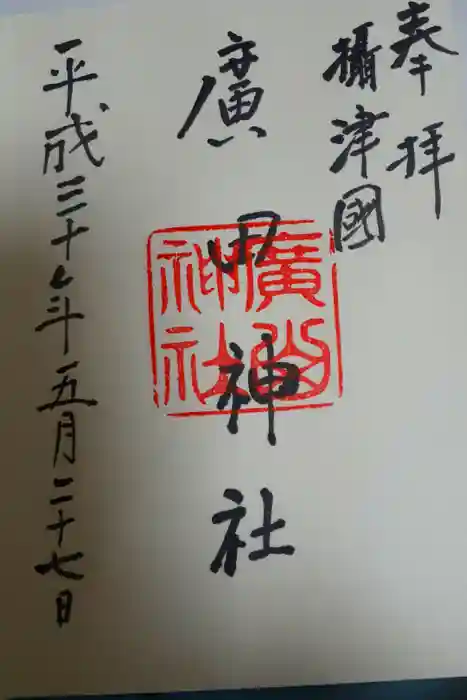 奉拝
攝津國
廣田神社
廣
神社
平成三十年五月二十七日